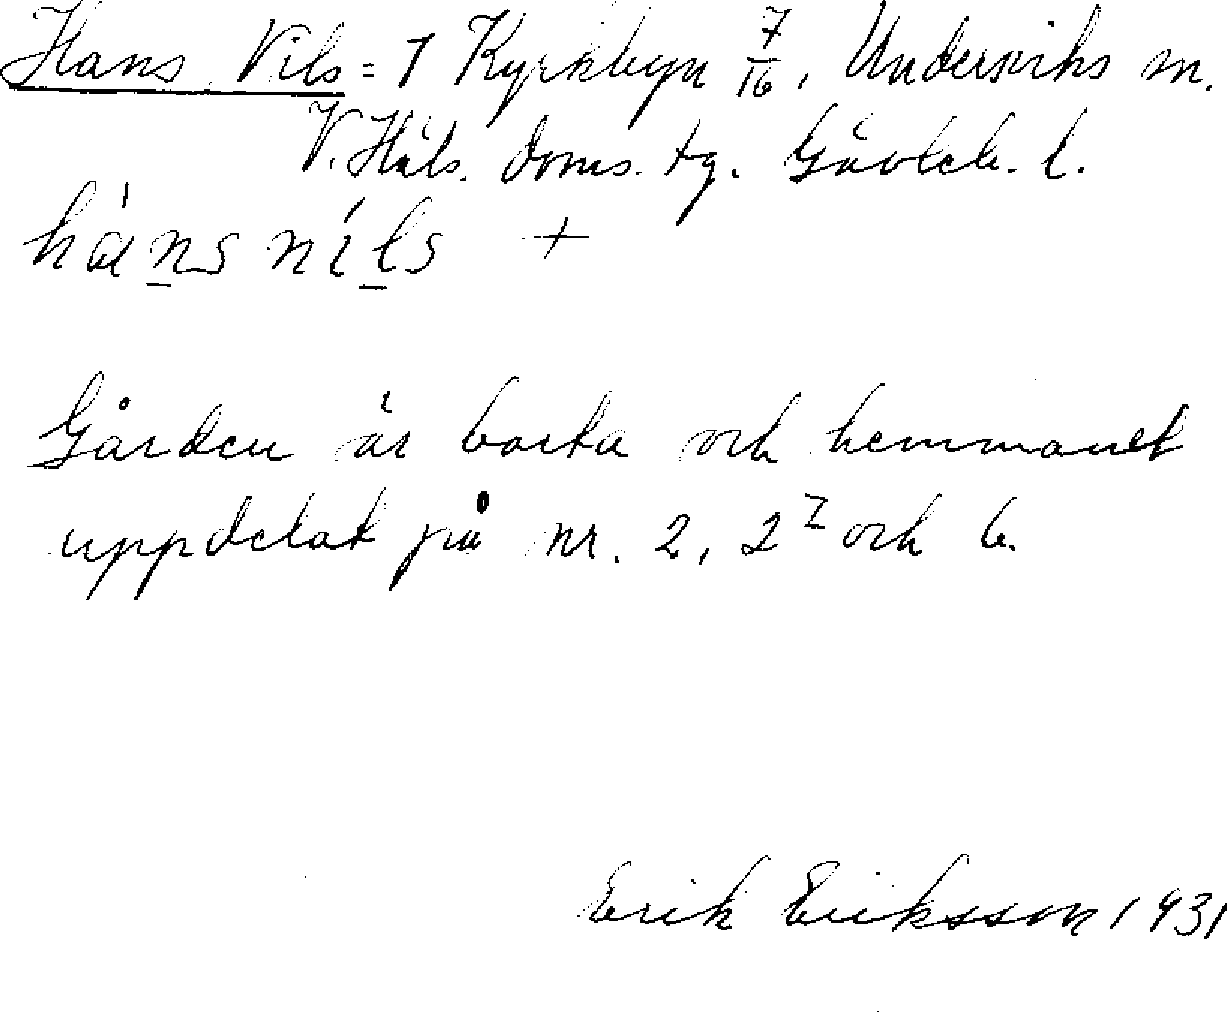 Hans Nils = 1 Kyrkbyn 7/16, Undersviks sn.
V. Häls. doms. tg. Gävleb. l.
hàns níls +
Gården är borta och hemmanet
uppdelat på nr. 2, 2² och 6.
Erik Eriksson 1931